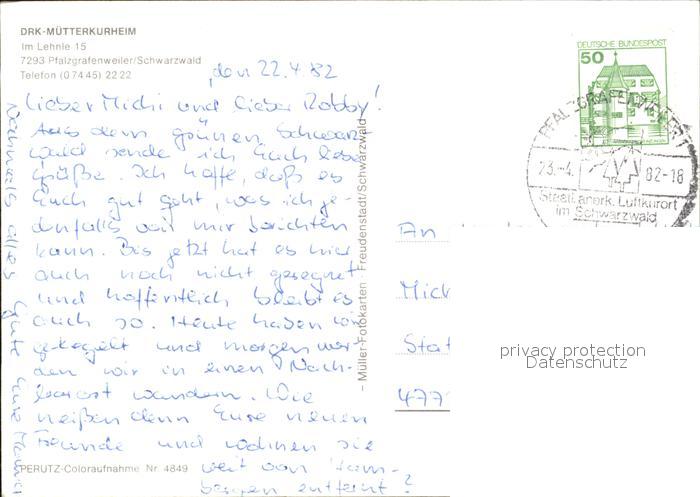 DRK-MÜTTERKURHEIM
Im Lehnle 15
7293 Pfalzgrafenweiler/Schwarzwald
Telefon (0 74 45) 22 22
den 22.4.82
Lieber Michi und lieber Robby!
Aus dem grünen Schwarz-
wald sende ich Euch liebe
Grüße. Ich hoffe, daß es
Euch gut geht, was ich je-
denfalls von mir berichten
kann. Bis jetzt hat es hier
auch noch nicht geregnet
und hoffentlich bleibt es
auch so. Heute haben wir
gekegelt und morgen wer-
den wir in einen Nach-
barort wandern. Wie
heißen denn Eure neuen
Freunde und wohnen sie
weit von Ham-
bergen entfernt?
Nochmals alles Gute Eure
PERUTZ-Coloraufnahme Nr 4849
– Müller-Fotokarten · Freudenstadt/Schwarzwald
DEUTSCHE BUNDESPOST
50
23.-4.
82-18
Staatl. anerk. Luftkurort
im Schwarzwald
An
Mich
Stat
477
privacy protection
Datenschutz